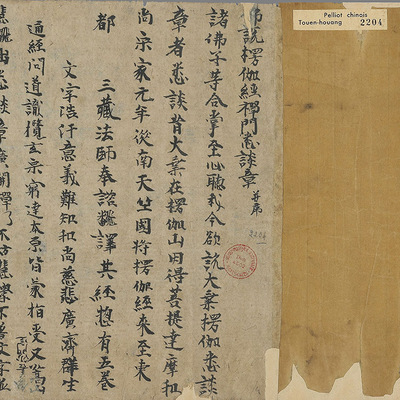 佛說楞伽經禪門悉談章 并序
諸佛子等合掌至心聽我今欲說大乘楞伽悉談
章者悉談昔大乘在楞伽山因得菩提達摩和
尚宋家元年從南天竺國將楞伽經來至東
都 三藏法師奉諮翻譯其經惣有五卷
文字浩汗意義難知和尚慈悲廣濟群生
通經問道識攬玄宗窮達本原皆蒙指受又嵩
出悉談章廣開禪門不妨慧學不著文字並
Pelliot chinois
Touen-houang 2204
2204